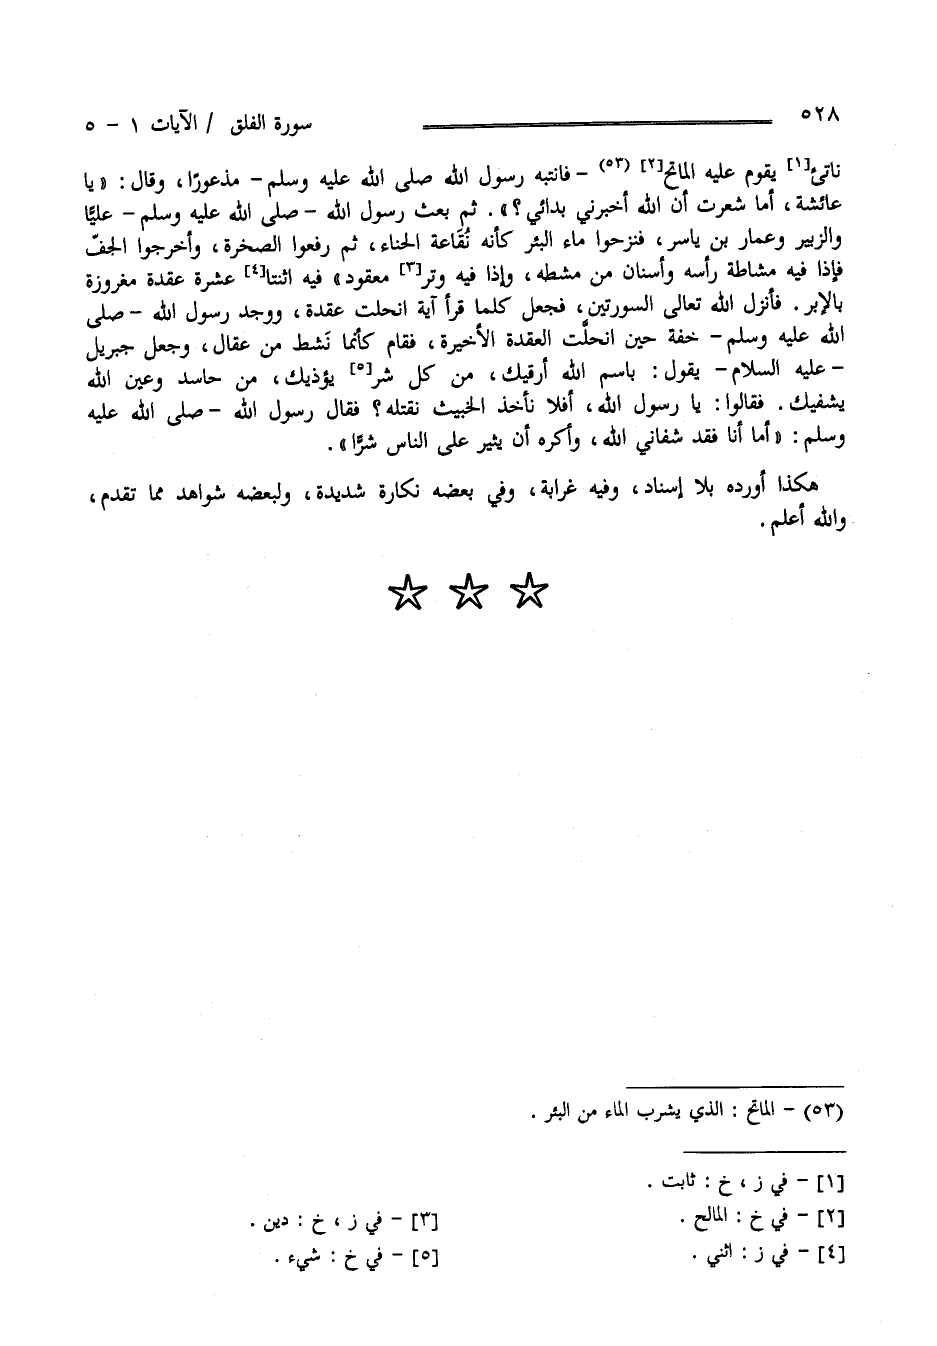 ٥٢٨ سورة الفلق / الآيات ١ - ٥
ناتئ[١] يقوم عليه الماتح[٢] (٥٣) - فانتبه رسول الله صلى الله عليه وسلم - مذعورًا، وقال : « يا
عائشة ، أما شعرت أن الله أخبرني بدائي ؟ » . ثم بعث رسول الله - صلى الله عليه وسلم - عليًّا
والزبير وعمار بن ياسر ، فنزحوا ماء البئر كأنه نُقَاعة الحناء ، ثم رفعوا الصخرة ، وأخرجوا الجفّ
فإذا فيه مشاطة رأسه وأسنان من مشطه ، وإذا فيه وتر[٣] معقود » فيه اثنتا[٤] عشرة عقدة مغروزة
بالإبر . فأنزل الله تعالى السورتين ، فجعل كلما قرأ آية انحلت عقدة ، ووجد رسول الله - صلى
الله عليه وسلم - خفة حين انحلَّت العقدة الأخيرة ، فقام كأنما نَشط من عقال ، وجعل جبريل
- عليه السلام - يقول : باسم الله أرقيك ، من كل شر[٥] يؤذيك ، من حاسد وعين الله
يشفيك . فقالوا : يا رسول الله ، أفلا نأخذ الخبيث نقتله ؟ فقال رسول الله - صلى الله عليه
وسلم : « أما أنا فقد شفاني الله ، وأكره أن يثير على الناس شرًّا » .
هكذا أورده بلا إسناد ، وفيه غرابة ، وفي بعضه نكارة شديدة ، ولبعضه شواهد مما تقدم ،
والله أعلم .
(٥٣) - الماتح : الذي يشرب الماء من البئر .
[١] - في ز ، خ : ثابت .
[٢] - في خ : المالح . [٣] - في ز ، خ : دين .
[٤] - في ز : اثني . [٥] - في خ : شيء .